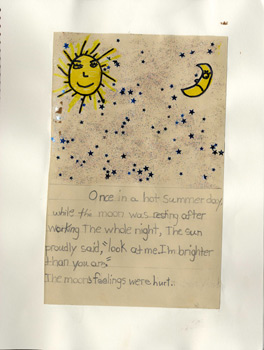 Once in a hot summer day,
while the moon was resting after
working The whole night, The sun
proudly said,"look at me.I'm brighter
than you are."
The moon's feelings were hurt.